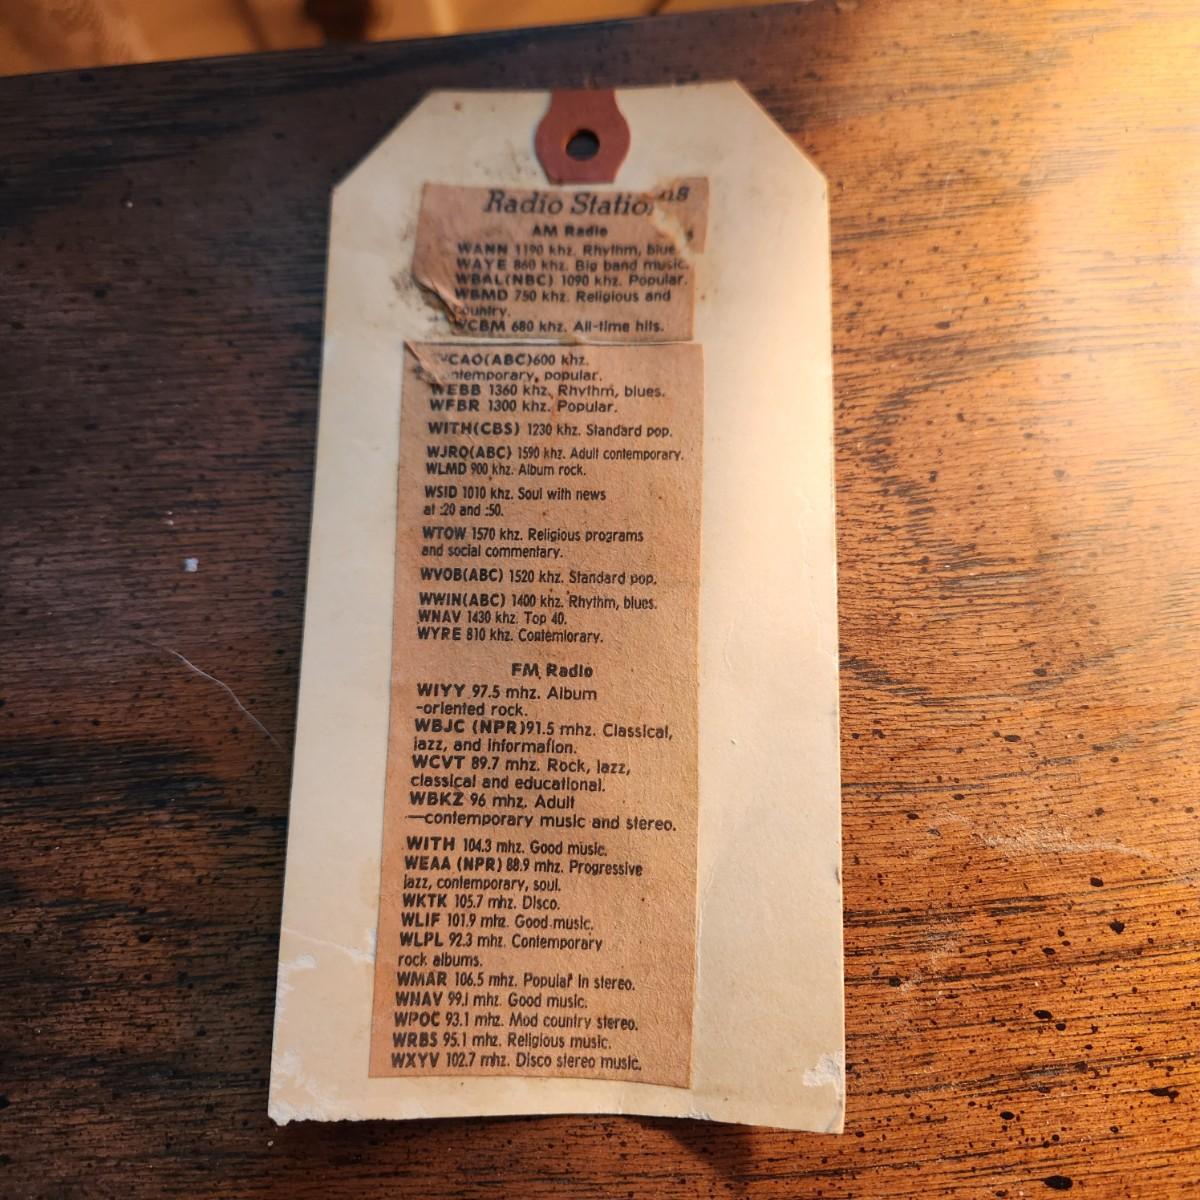 Radio Stations
AM Radio
WANN 1190 khz. Rhythm, blues
WAYE 860 khz. Big band music.
WBAL(NBC) 1090 khz. Popular.
WBMD 750 khz. Religious and
country.
WCBM 680 khz. All-time hits.
WCAO(ABC)600 khz.
contemporary, popular.
WEBB 1360 khz. Rhythm, blues.
WFBR 1300 khz. Popular.
WITH(CBS) 1230 khz. Standard pop.
WJRO(ABC) 1590 khz. Adult contemporary.
WLMD 900 khz. Album rock.
WSID 1010 khz. Soul with news
at :20 and :50.
WTOW 1570 khz. Religious programs
and social commentary.
WVOB(ABC) 1520 khz. Standard pop.
WWIN(ABC) 1400 khz. Rhythm, blues.
WNAV 1430 khz. Top 40.
WYRE 810 khz. Contemlorary.
FM Radio
WIYY 97.5 mhz. Album
-oriented rock.
WBJC (NPR)91.5 mhz. Classical,
jazz, and information.
WCVT 89.7 mhz. Rock, jazz,
classical and educational.
WBKZ 96 mhz. Adult
—contemporary music and stereo.
WITH 104.3 mhz. Good music.
WEAA (NPR) 88.9 mhz. Progressive
jazz, contemporary, soul.
WKTK 105.7 mhz. Disco.
WLIF 101.9 mhz. Good music.
WLPL 92.3 mhz. Contemporary
rock albums.
WMAR 106.5 mhz. Popular in stereo.
WNAV 99.1 mhz. Good music.
WPOC 93.1 mhz. Mod country stereo.
WRBS 95.1 mhz. Religious music.
WXYV 102.7 mhz. Disco stereo music.